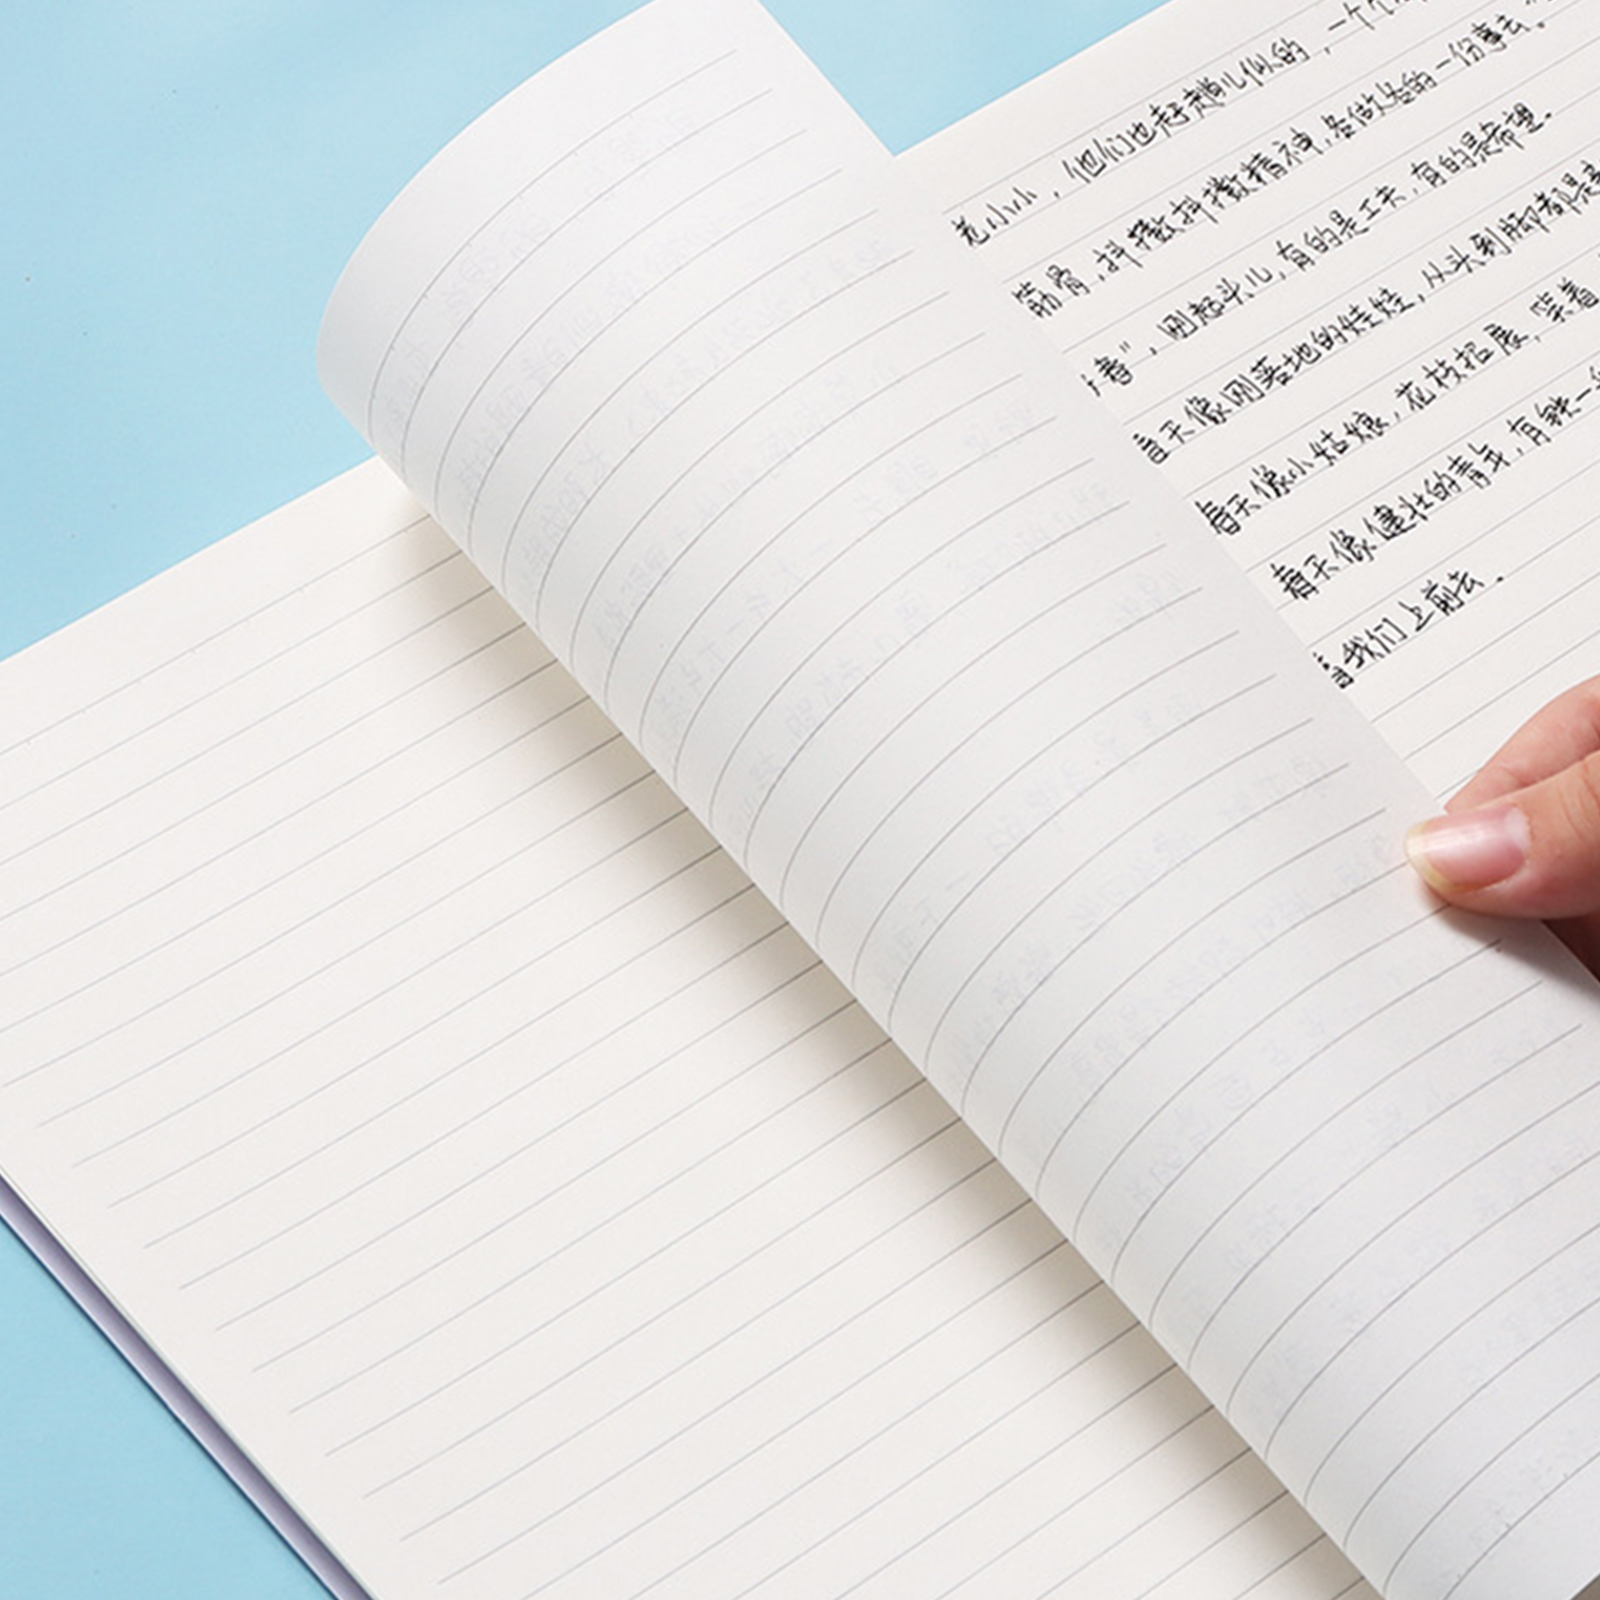 老小小，他们也赶趟儿似的，一个个
筋骨，抖擞抖擞精神，各做各的一份事去。
春"，刚起头儿，有的是工夫，有的是希望。
春天像刚落地的娃娃，从头到脚都是
春天像小姑娘，花枝招展，笑着
春天像健壮的青年，有铁一
我们上前去。